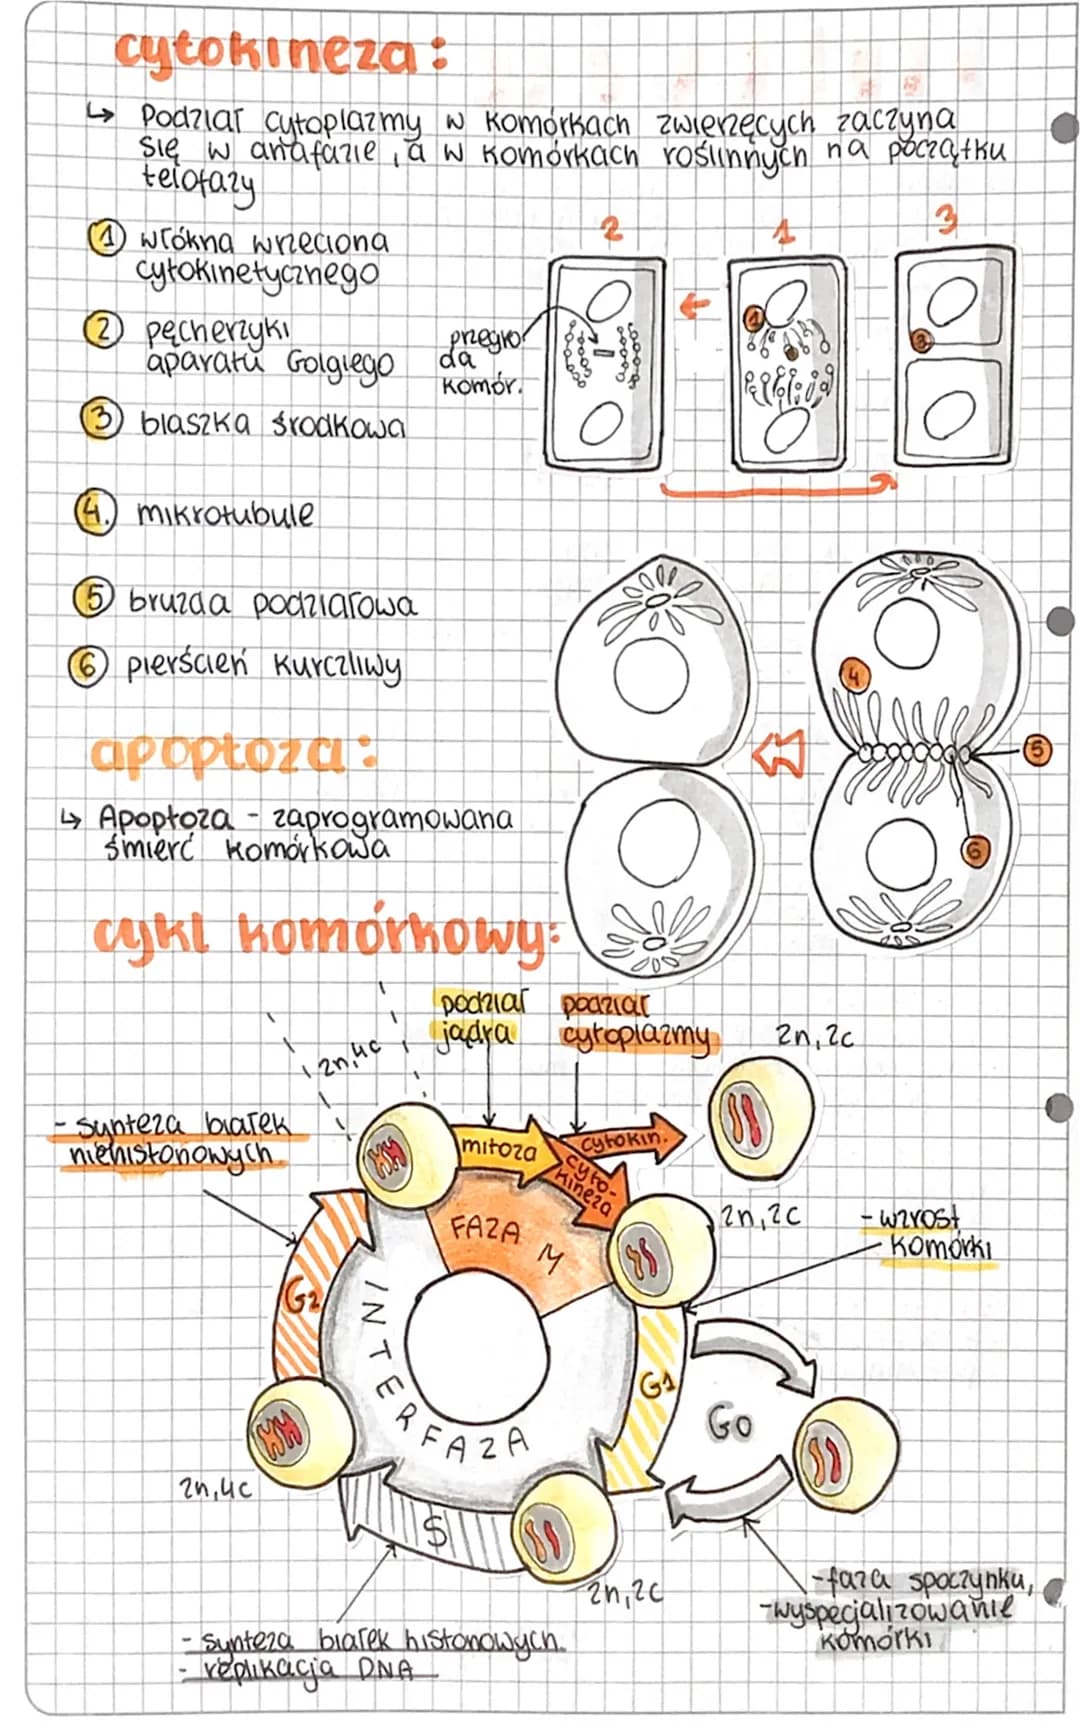 cytokineza:
↳ Podział cytoplazmy w komórkach zwierzęcych zaczyna
się w anafazie, a w komórkach roślinnych na początku
telofazy
2
1
3
① włókna wrzeciona
cytokinetycznego
② pęcherzyki
aparatu Golgiego
③ blaszka środkowa
przegro
da
komór.
1
3
④. mikrotubule
⑤ bruzda podziałowa
⑥ pierścień kurczliwy
4
5
6
apoptoza:
↳ Apoptoza - zaprogramowana
śmierć komórkowa
cykl komórkowy:
podział
jądra
podział
cytoplazmy
2n,2c
2n,4c
- synteza białek
niehistonowych
mitoza
cytokin.
cyto-
kineza
2n,2c
- wzrost
komórki
FAZA M
G2
INTERFAZA
G1
G0
2n,4c
S
2n,2c
- faza spoczynku,
- wyspecjalizowanie
komórki
- synteza białek histonowych
- replikacja DNA